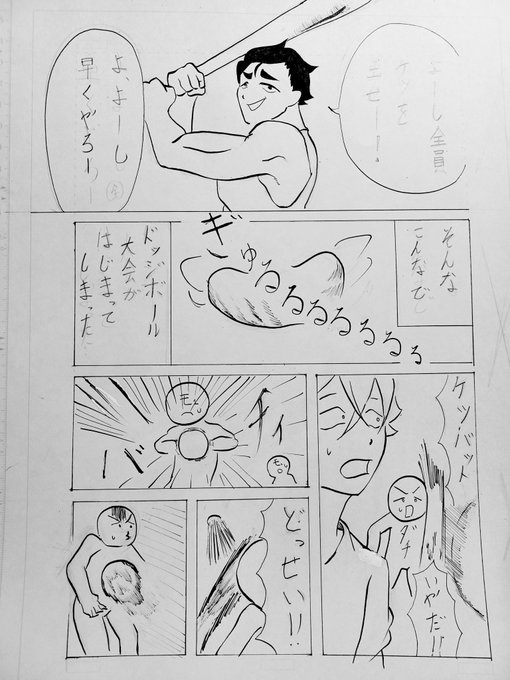 よーし全員
ケツを
出せー!
よ、よーし
早くやろー
そんな
こんなで
ギュるるるるるるる
ドッジボール
大会が
はじまって
しまった
ケツバット
いやだ!!
ダチ
バチィ
どっせい!!